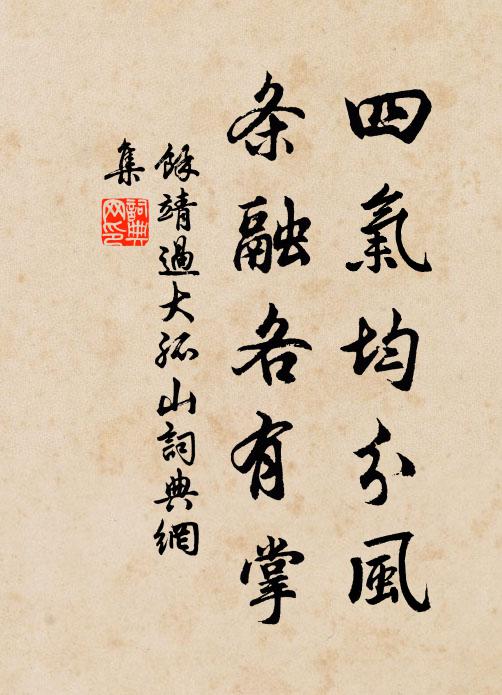 四氣均分風
条融各有掌
餘靖過大孤山詞典網
集
詞典
网印